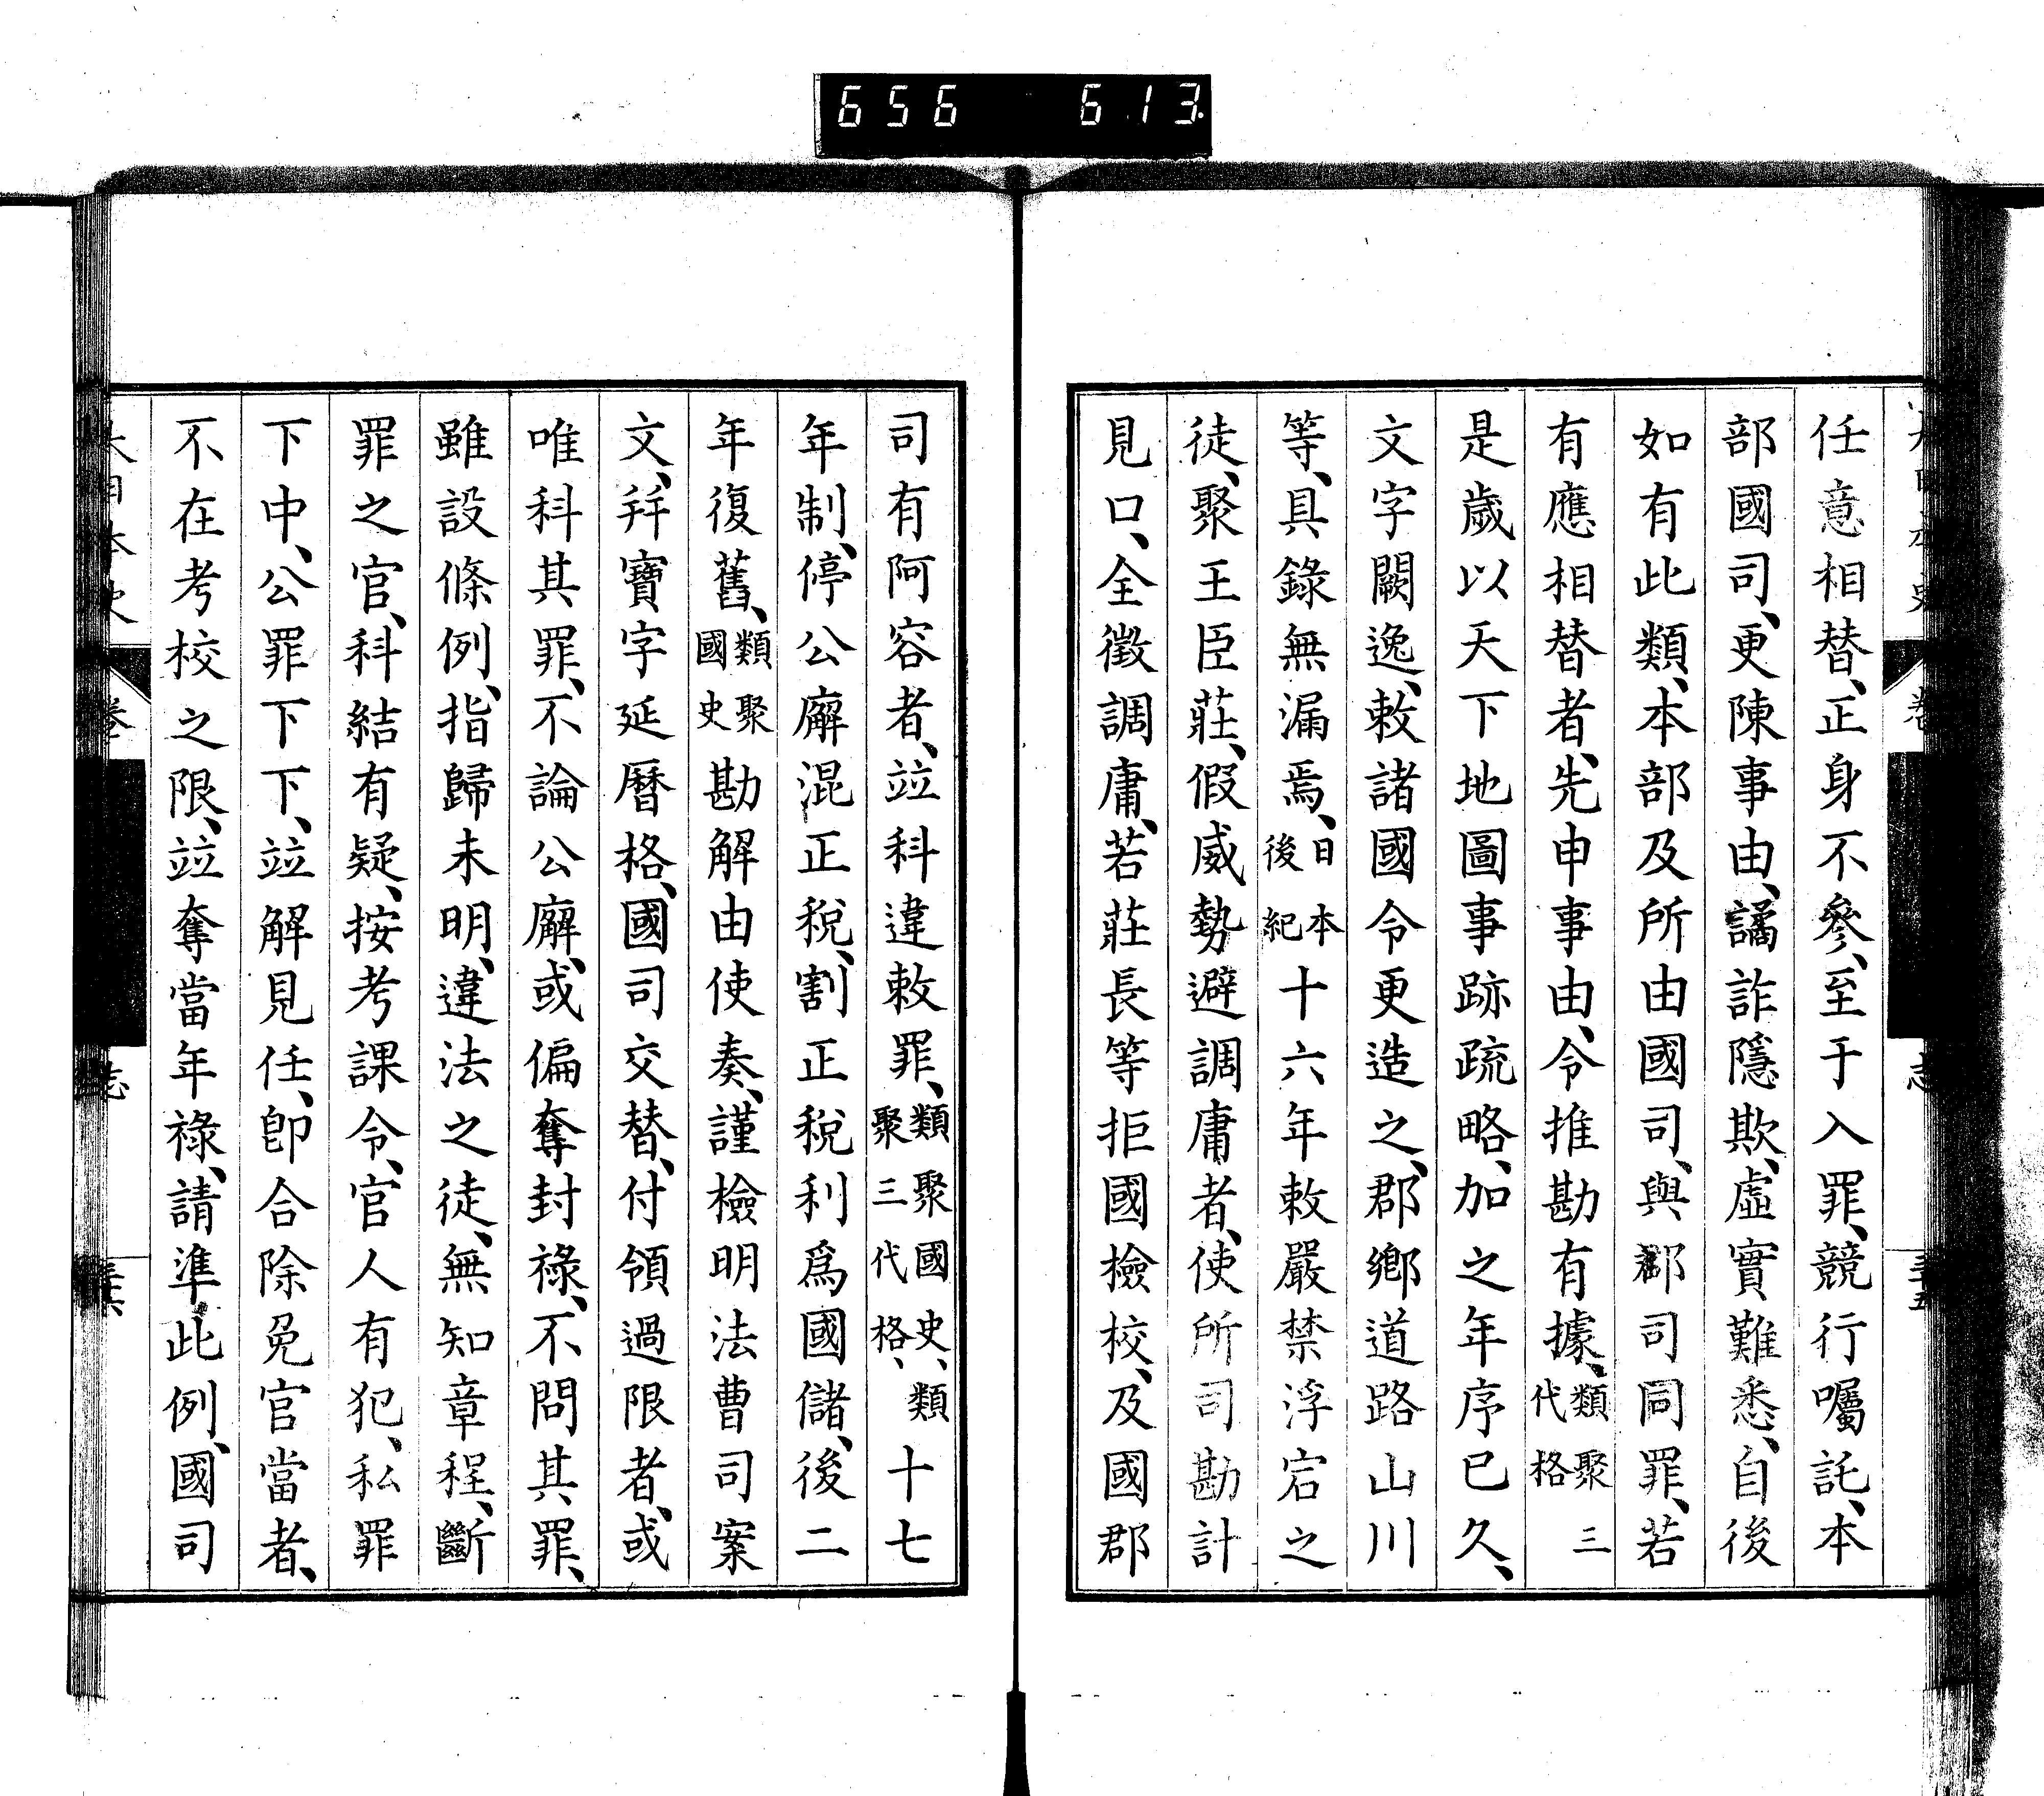 656 613
任意相替、正身不參、至于入罪、競行囑託、本
部國司、更陳事由、譎詐隱欺、虛實難悉、自後
如有此類、本部及所由國司、與鄰司同罪、若
有應相替者、先申事由、令推勘有據、類聚三代格
是歲以天下地圖事跡疏略、加之年序已久、
文字闕逸、敕諸國令更造之、郡鄉道路山川
等、具錄無漏焉、日本後紀十六年敕嚴禁浮宕之
徒、聚王臣莊、假威勢避調庸者、使所司勘計
見口、全徵調庸、若莊長等拒國檢校、及國郡
司有阿容者、竝科違敕罪、類聚國史、類聚三代格、十七
年制、停公廨混正稅、割正稅利爲國儲、後二
年復舊、類聚國史勘解由使奏、謹檢明法曹司案
文、幷寶字延曆格、國司交替、付領過限者、或
唯科其罪、不論公廨、或偏奪封祿、不問其罪、
雖設條例、指歸未明、違法之徒、無知章程、斷
罪之官、科結有疑、按考課令、官人有犯、私罪
下中、公罪下下、竝解見任、卽合除免官當者、
不在考校之限、竝奪當年祿、請準此例、國司
大日本史 卷 志 三十六